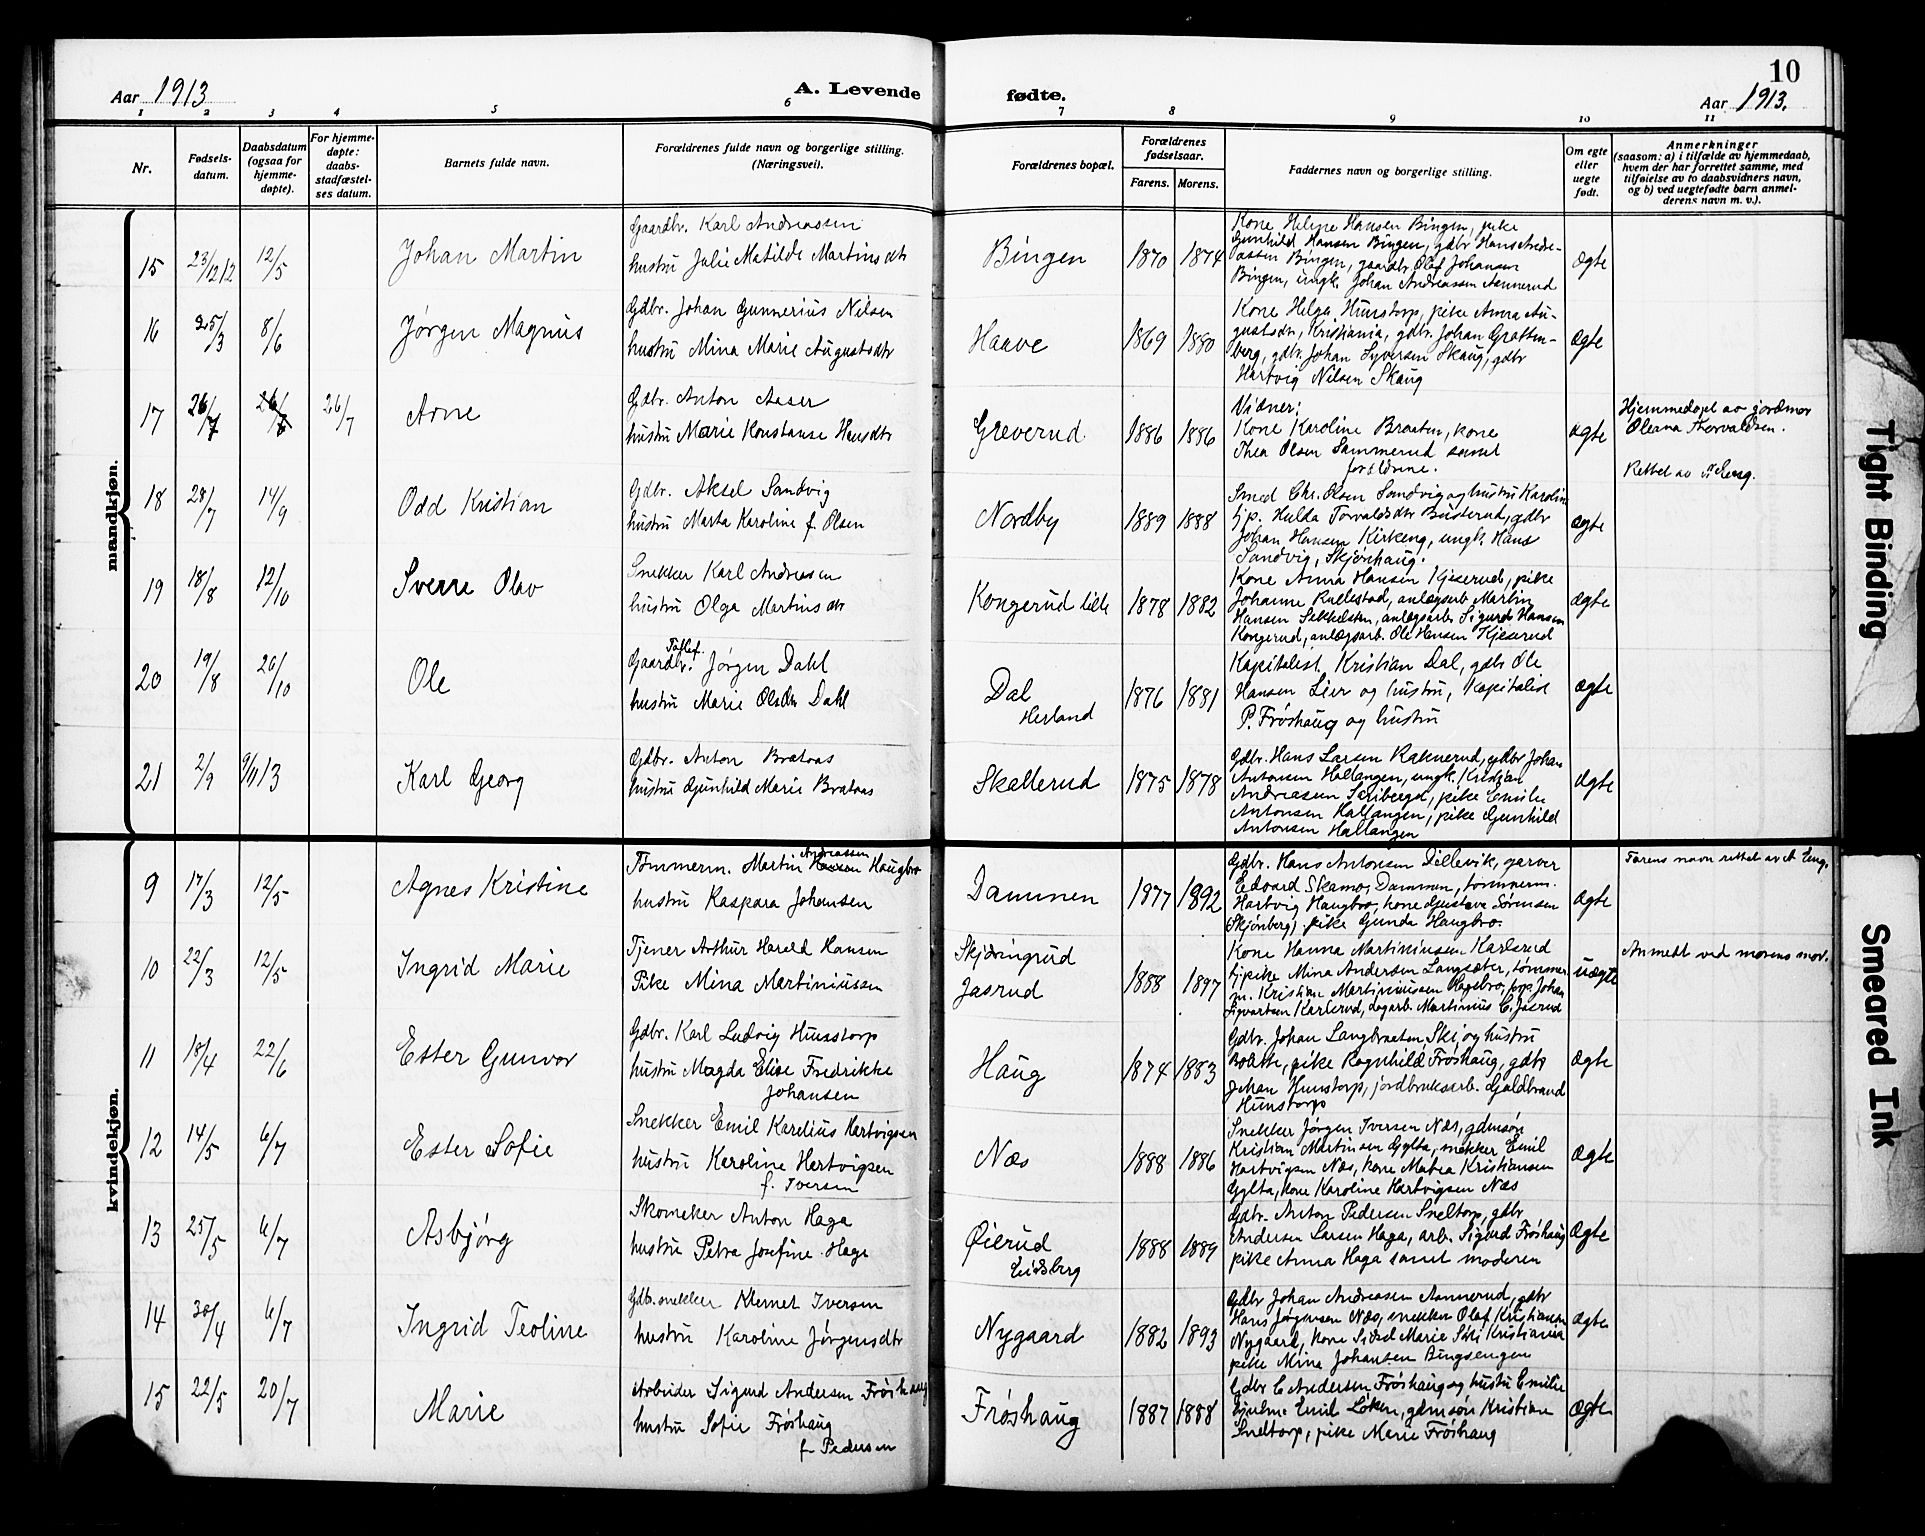 10
Aar 1913
A. Levende
fødte.
Aar 1913.
1 2 3 4 5 6 7 8 9 10 11
Nr.
Fødsels-
datum.
Daabsdatum
(ogsaa for
hjemme-
døpte).
For hjemme-
døpte:
daabs-
stadfæstel-
ses datum.
Barnets fulde navn.
Forældrenes fulde navn og borgerlige stilling.
(Næringsvei).
Forældrenes bopæl.
Forældrenes
fødselsaar.
Farens. Morens.
Faddernes navn og borgerlige stilling.
Om egte
eller
uegte
født.
Anmerkninger
(saasom: a) i tilfælde av hjemmedaab,
hvem der har forrettet samme, med
tilføielse av to daabsvidners navn,
og b) ved uegtefødte barn anmel-
derens navn m. v.).
mandkjøn.
15 23/12 12 12/5 Johan Martin
Gaardbr. Karl Andreassen
hustru Julie Matilde Martinsdtr
Bingen 1870 1874
Kone Helene Hansen Bingen, pike
Gunhild Hansen Bingen, gdbr Hans Andre-
assen Bingen, gaardbr. Olaf Johansen
Bingen, ungk. Johan Andreassen Aannerud
ægte
16 25/3 8/6 Jørgen Magnus
Gdbr. Johan Gunnerius Nilsen
hustru Mina Marie Augustsdtr
Haave 1869 1880
Kone Helga Hunstorp, pike Anna Au-
gustsdtr, Kristiania, gdbr. Johan
berg, gdbr. Johan Syversen Skaug, gdbr
Hartvig Nilsen Skaug
ægte
17 26/7 26/7 Arne
Gdbr. Anton Aaser
hustru Marie Konstanse Hansdtr
Greverud 1886 1886
Vidner:
Kone Karoline Braaten, kone
Thea Olsen Sammerud samt
forældrene.
ægte
Hjemmedøpt av jordmor
Oleana Thorvaldsen.
Rettet av A Eng.
18 28/7 14/9 Odd Kristian
Gdbr. Aksel Sandvig
hustru Marta Karoline f. Olsen
Nordby 1889 1888
Smed Chr. Olsen Sandvig og hustru Karoline
tjp. Hulda Torvaldsdtr Busterud, gdbr
Johan Hansen Kirkeng, ungk. Hans
Sandvig, Skjønhaug.
ægte
19 18/8 12/10 Sverre Olav
Snekker Karl Andreasen
hustru Olga Martinsdtr
Kongerud lille 1878 1882
Kone Anna Hansen Kjeserud, pike
Johanne Rullestad, anlægsarb Martin
Hansen, anlægsarb. Sigurd Hansen
Kongerud, anlægsarb. Ole Hansen Kjeserud
ægte
20 19/8 26/10 Ole
Gaardbr. Jørgen Dahl
hustru Marie Olsdtr Dahl
Dal
Herland
1876 1881
Kapitalist Kristian Dal, gdbr Ole
Hansen Lier og hustru, Kapitalist
P. Frøshaug og hustru
ægte
21 2/9 9/11 13 Karl Georg
Gdbr. Anton Brataas
hustru Gunhild Marie Brataas
Skallerud 1875 1878
Gdbr. Hans Larsen Raknerud, gdbr Johan
Antonsen Hallangen, ungk. Kristian
Andreasen, pike Emilie
Antonsen Hallangen, pike Gunhild
Antonsen Hallangen
ægte
kvindekjøn.
9 17/3 12/5 Agnes Kristine
Andreassen
Tømmerm. Martin Hansen Haugbro
hustru Kaspara Johansen
Dammen 1877 1892
Gdbr. Hans Antonsen Lillevik, garver
Edvard Skamo, Dammen, tømmerm.
Hartvig Haugbro, kone Gustava Sørensen
Skjønberg, pike Gunda Haugbro.
ægte
Farens navn rettet av A Eng.
10 22/3 12/5 Ingrid Marie
Tjener Arthur Harald Hansen
Pike Mina Martiniussen
Skjæringrud
Jasrud
1888 1897
Kone Hanna Martiniussen Karlsrud
tjpike Mina Andersen Langsæter, tømmer-
m. Kristian Martiniussen Hagebro, Johan
Sigvartsen Karlsrud, dagarb. Martinius C. Jasrud
uægte
Anmeldt ved morens mor.
11 18/4 22/6 Ester Gunvor
Gdbr. Karl Ludvig Hunstorp
hustru Magda Elise Fredrikke
Johansen
Haug 1874 1883
Gdbr. Johan Langbraaten, Ski, og hustru
pike Ragnhild Frøshaug, gdbr
Johan Hunstorp, jordbruksarb. Guldbrand
Hunstorp
ægte
12 14/5 6/7 Ester Sofie
Snekker Emil Karelius Hartvigsen
hustru Karoline Hartvigsen
f. Iversen
Næs 1888 1886
Snekker Jørgen Iversen Næs, gdmsøn
Kristian Martinsen Gylta, snekker Emil
Hartvigsen Næs, kone Matea Kristiansen
Gylta, kone Karoline Hartvigsen Næs
ægte
13 25/5 6/7 Asbjørg
Skomaker Anton Haga
hustru Petra Josefine Haga
Øierud
Eidsberg
1888 1889
Gdbr. Anton Pedersen Sneltorp, gdbr
Andersen Larsen Haga, arb. Sigurd Frøshaug
pike Anna Haga samt moderen
ægte
14 30/4 6/7 Ingrid Teoline
Gdbr. snekker Klemet Iversen
hustru Karoline Jørgensdtr
Nygaard 1882 1893
Gdbr Johan Andreasen Aannerud, gdbr
Hans Jørgensen Næs, snekker Olaf Kristiansen
Nygaard, kone Sidsel Marie Kristiania
pike Mina Johansen Bingsengen
ægte
15 22/5 20/7 Marie
Arbeider Sigurd Andersen Frøshaug
hustru Sofie Frøshaug
f. Pedersen
Frøshaug 1887 1888
Gdbr C Andersen Frøshaug og hustru Emilie
Emil Løken, gdmsøn Kristian
Sneltorp, pike Marie Frøshaug
ægte
Tight Binding
Smeared Ink